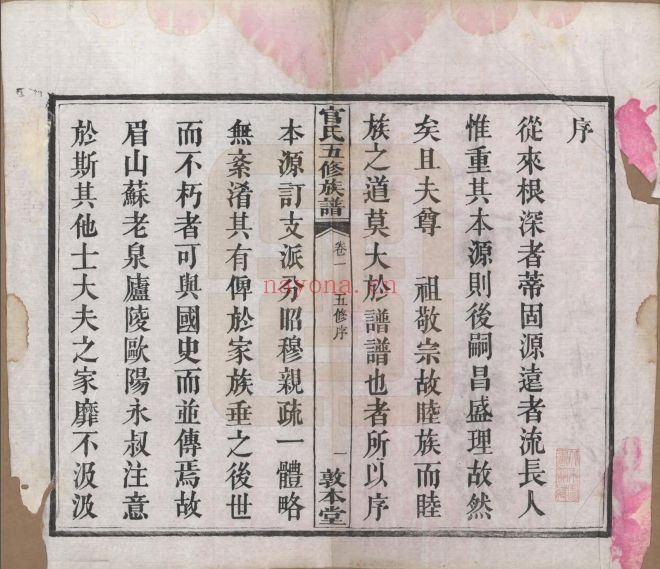 序
從來根深者蒂固源遠者流長人
惟重其本源則後嗣昌盛理故然
矣且夫尊　祖敬宗故睦族而睦
族之道莫大於譜譜也者所以序
官氏五修族譜　卷一　五修序　一　敦本堂
本源訂支派分昭穆親疏一體略
無紊淆其有俾於家族垂之後世
而不朽者可與國史而並傳焉故
眉山蘇老泉廬陵歐陽永叔注意
於斯其他士大夫之家靡不汲汲
nayona.cn